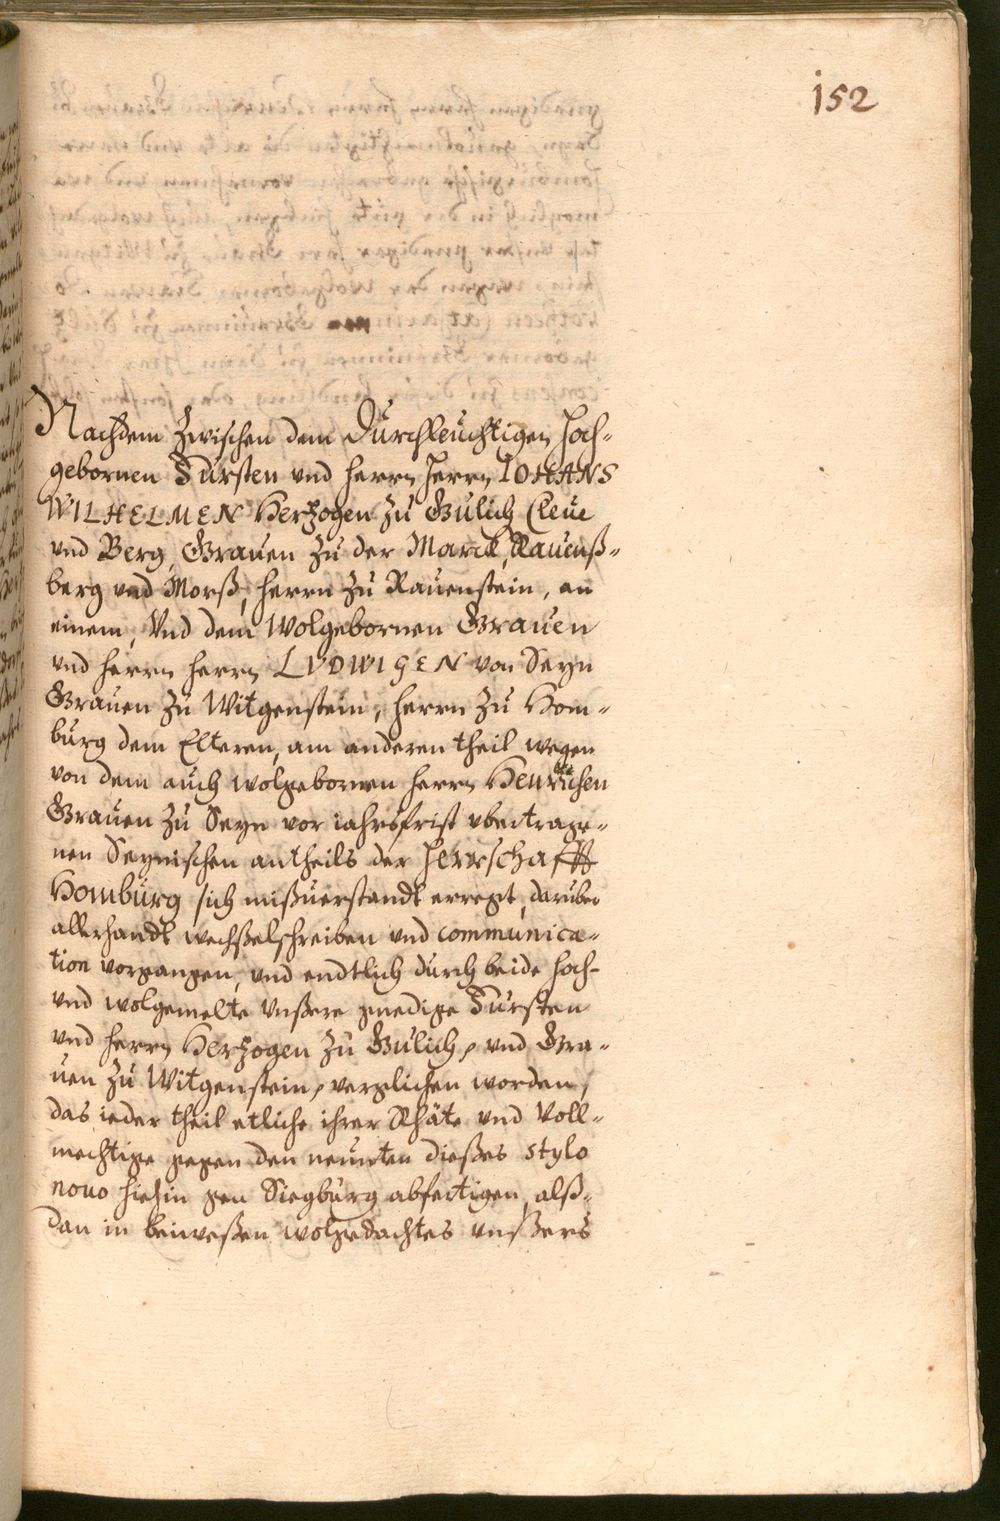 152
Nachdem Zwischen dem Durchleuchtigen Hoch-
gebornen Fürsten und Herrn Herrn IOHANS
WILHELMEN Hertzogen zu Gulich Cleue
und Berg, Grauen zu der Marck, Rauenß-
berg und Morß, Herrn zu Rauenstein, an
einem, Und dem Wolgebornen Grauen
und Herrn Herrn LVDWIGEN von Seyn
Grauen zu Witgenstein, Herrn zu Hom-
burg dem Elteren, am anderen theil wegen
von dem auch wolgebornen Herrn Henrichen
Grauen zu Seyn vor iahrsfrist vbertrage-
nen Seynischen antheils der Herrschafft
Homburg sich mißuerstandt erregt, daruber
allerhandt wechßelschreiben und communica-
tion vorgangen, und endtlich durch beide Hoch-
und wolgemelte Unßere gnedige Fursten
und Herrn Hertzogen zu Gulich, und Gra-
uen zu Witgenstein, verglichen worden,
das ieder theil etliche ihrer Rhäte und Voll-
mechtige gegen den neunten dießes stylo
nouo hiehin gen Siegburg abfertigen, alß-
dan in beiweßen wolgedachtes unßers